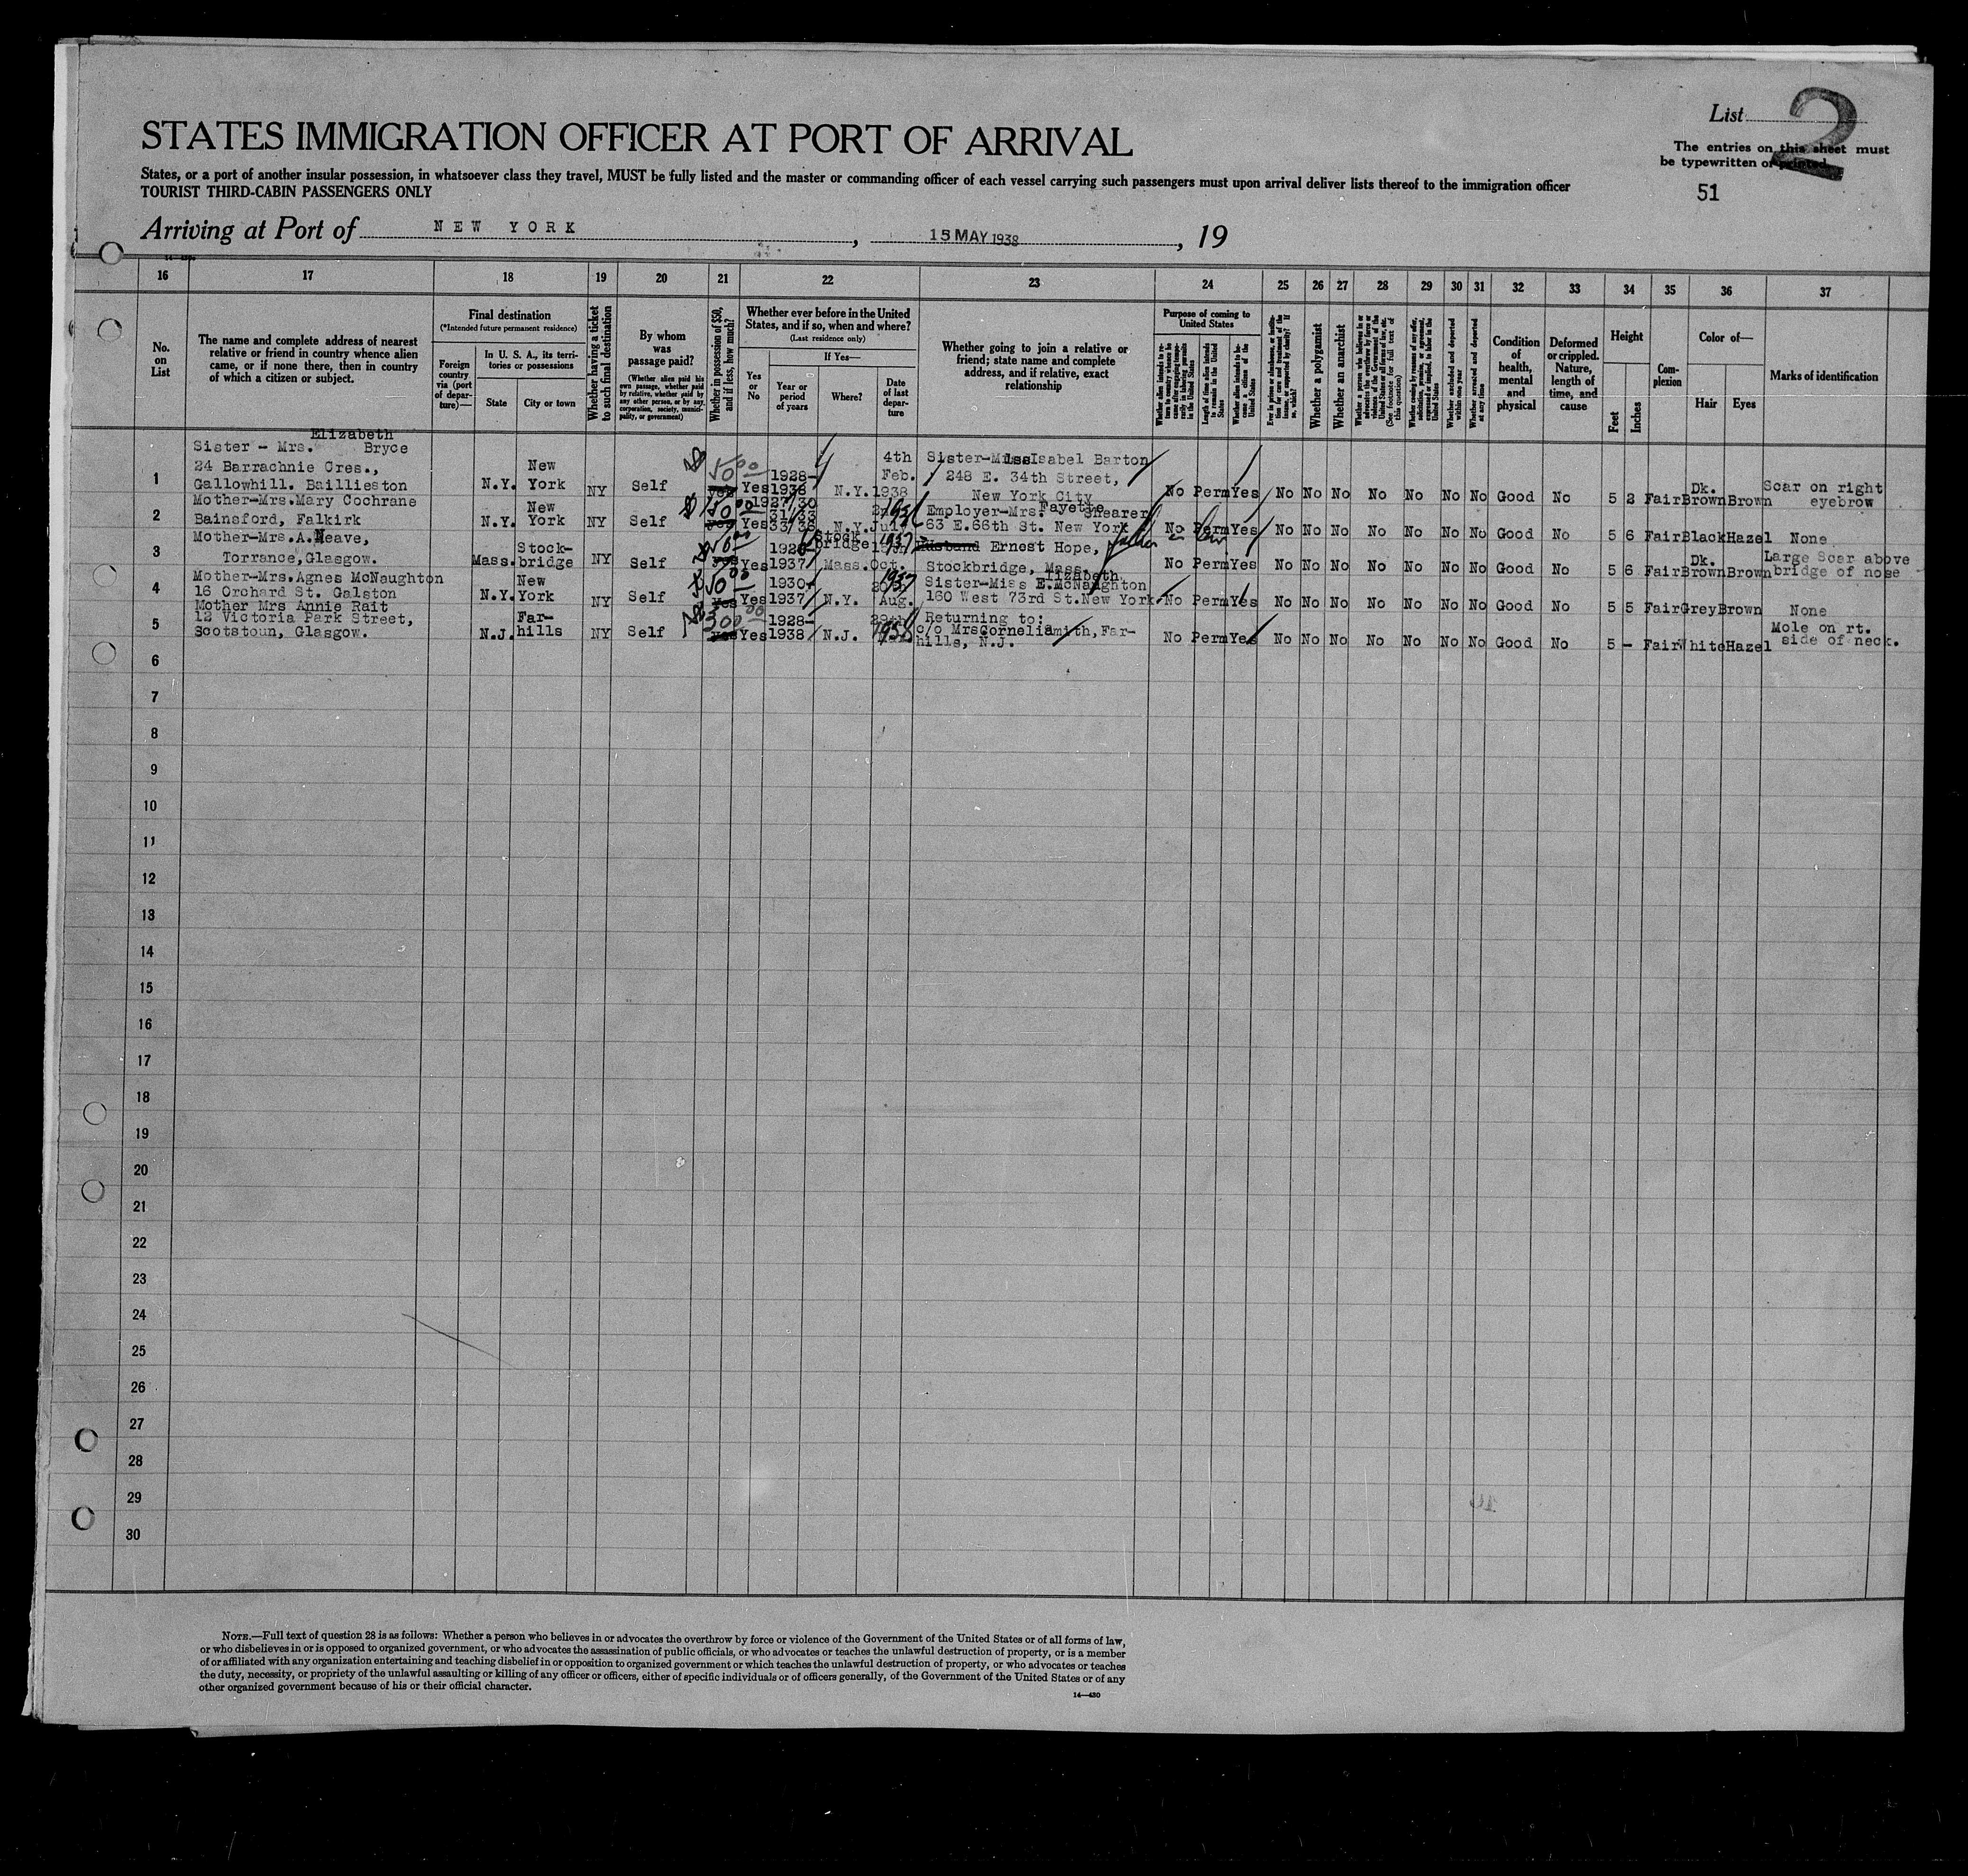 List 2
STATES IMMIGRATION OFFICER AT PORT OF ARRIVAL
The entries on this sheet must
be typewritten or printed.
States, or a port of another insular possession, in whatsoever class they travel, MUST be fully listed and the master or commanding officer of each vessel carrying such passengers must upon arrival deliver lists thereof to the immigration officer
TOURIST THIRD-CABIN PASSENGERS ONLY
51
Arriving at Port of NEW YORK, 15 MAY 1938, 19
16 17 18 19 20 21 22 23 24 25 26 27 28 29 30 31 32 33 34 35 36 37
No. on List
The name and complete address of nearest
relative or friend in country whence alien
came, or if none there, then in country
of which a citizen or subject.
Final destination
(*Intended future permanent residence)
Foreign country via (port of departure)—
In U. S. A., its territories or possessions
State
City or town
Whether having a ticket to such final destination
By whom was passage paid?
(Whether alien paid his own passage, whether paid by relative, whether paid by any other person, or by any corporation, society, municipality, or government)
Whether in possession of $50, and if less, how much?
Whether ever before in the United States, and if so, when and where?
(Last residence only)
Yes or No
If Yes—
Year or period of years
Where?
Date of last departure
Whether going to join a relative or
friend; state name and complete
address, and if relative, exact
relationship
Purpose of coming to United States
Whether alien intends to return to country whence he came after engaging temporarily in laboring pursuits in the United States
Length of time alien intends to remain in the United States
Whether alien intends to become a citizen of the United States
Ever in prison or almshouse, or institution for care and treatment of the insane, or supported by charity? If so, which?
Whether a polygamist
Whether an anarchist
Whether a person who believes in or advocates the overthrow by force or violence of the Government of the United States or all forms of law, etc. (See footnote for full text of this question)
Whether coming by reason of any offer, solicitation, promise, or agreement, expressed or implied, to labor in the United States
Whether excluded and deported within one year
Whether arrested and deported at any time
Condition of health, mental and physical
Deformed or crippled. Nature, length of time, and cause
Height
Feet
Inches
Complexion
Color of—
Hair
Eyes
Marks of identification
1 Sister - Mrs. Elizabeth Bryce
24 Barrachnie Cres.,
Gallowhill. Baillieston
N.Y. New York NY Self $ 50 00 yes Yes 1928-1938 N.Y. 4th Feb. 1938
Sister-Miss Isabel Barton
248 E. 34th Street,
New York City
No Perm Yes No No No No No No No Good No 5 2 Fair Dk. Brown Brown Scar on right eyebrow
2 Mother-Mrs.Mary Cochrane
Bainsford, Falkirk
N.Y. New York NY Self $ 50 00 yes Yes 1927/30 31/33 33/38 N.Y. July
Employer-Mrs. Fayette Shearer
63 E.66th St. New York
No Perm Yes No No No No No No No Good No 5 6 Fair Black Hazel None
3 Mother-Mrs.A.Neave,
Torrance,Glasgow.
Mass. Stock-bridge NY Self 50 00 yes Yes 1928-1937 Stockbridge Mass. Oct. 1937
Husband Ernest Hope, father in law
Stockbridge, Mass.
No Perm Yes No No No No No No No Good No 5 6 Fair Dk. Brown Brown Large Scar above bridge of nose
4 Mother-Mrs.Agnes McNaughton
16 Orchard St. Galston
N.Y. New York NY Self 50 00 yes Yes 1930-1937 N.Y. Aug. 1937
Sister-Miss Elizabeth E.McNaughton
160 West 73rd St.New York
No Perm Yes No No No No No No No Good No 5 5 Fair Grey Brown None
5 Mother Mrs Annie Rait
12 Victoria Park Street,
Scotstoun, Glasgow.
N.J. Far-hills NY Self $ 300 00 yes Yes 1928-1938 N.J. 1938
Returning to:
c/o Mrs Cornelia Smith, Far-
hills, N.J.
No Perm Yes No No No No No No No Good No 5 - Fair White Hazel Mole on rt. side of neck.
6
7
8
9
10
11
12
13
14
15
16
17
18
19
20
21
22
23
24
25
26
27
28
29
30
NOTE.—Full text of question 28 is as follows: Whether a person who believes in or advocates the overthrow by force or violence of the Government of the United States or of all forms of law,
or who disbelieves in or is opposed to organized government, or who advocates the assassination of public officials, or who advocates or teaches the unlawful destruction of property, or is a member
of or affiliated with any organization entertaining and teaching disbelief in or opposition to organized government or which teaches the unlawful destruction of property, or who advocates or teaches
the duty, necessity, or propriety of the unlawful assaulting or killing of any officer or officers, either of specific individuals or of officers generally, of the Government of the United States or of any
other organized government because of his or their official character.
14—430